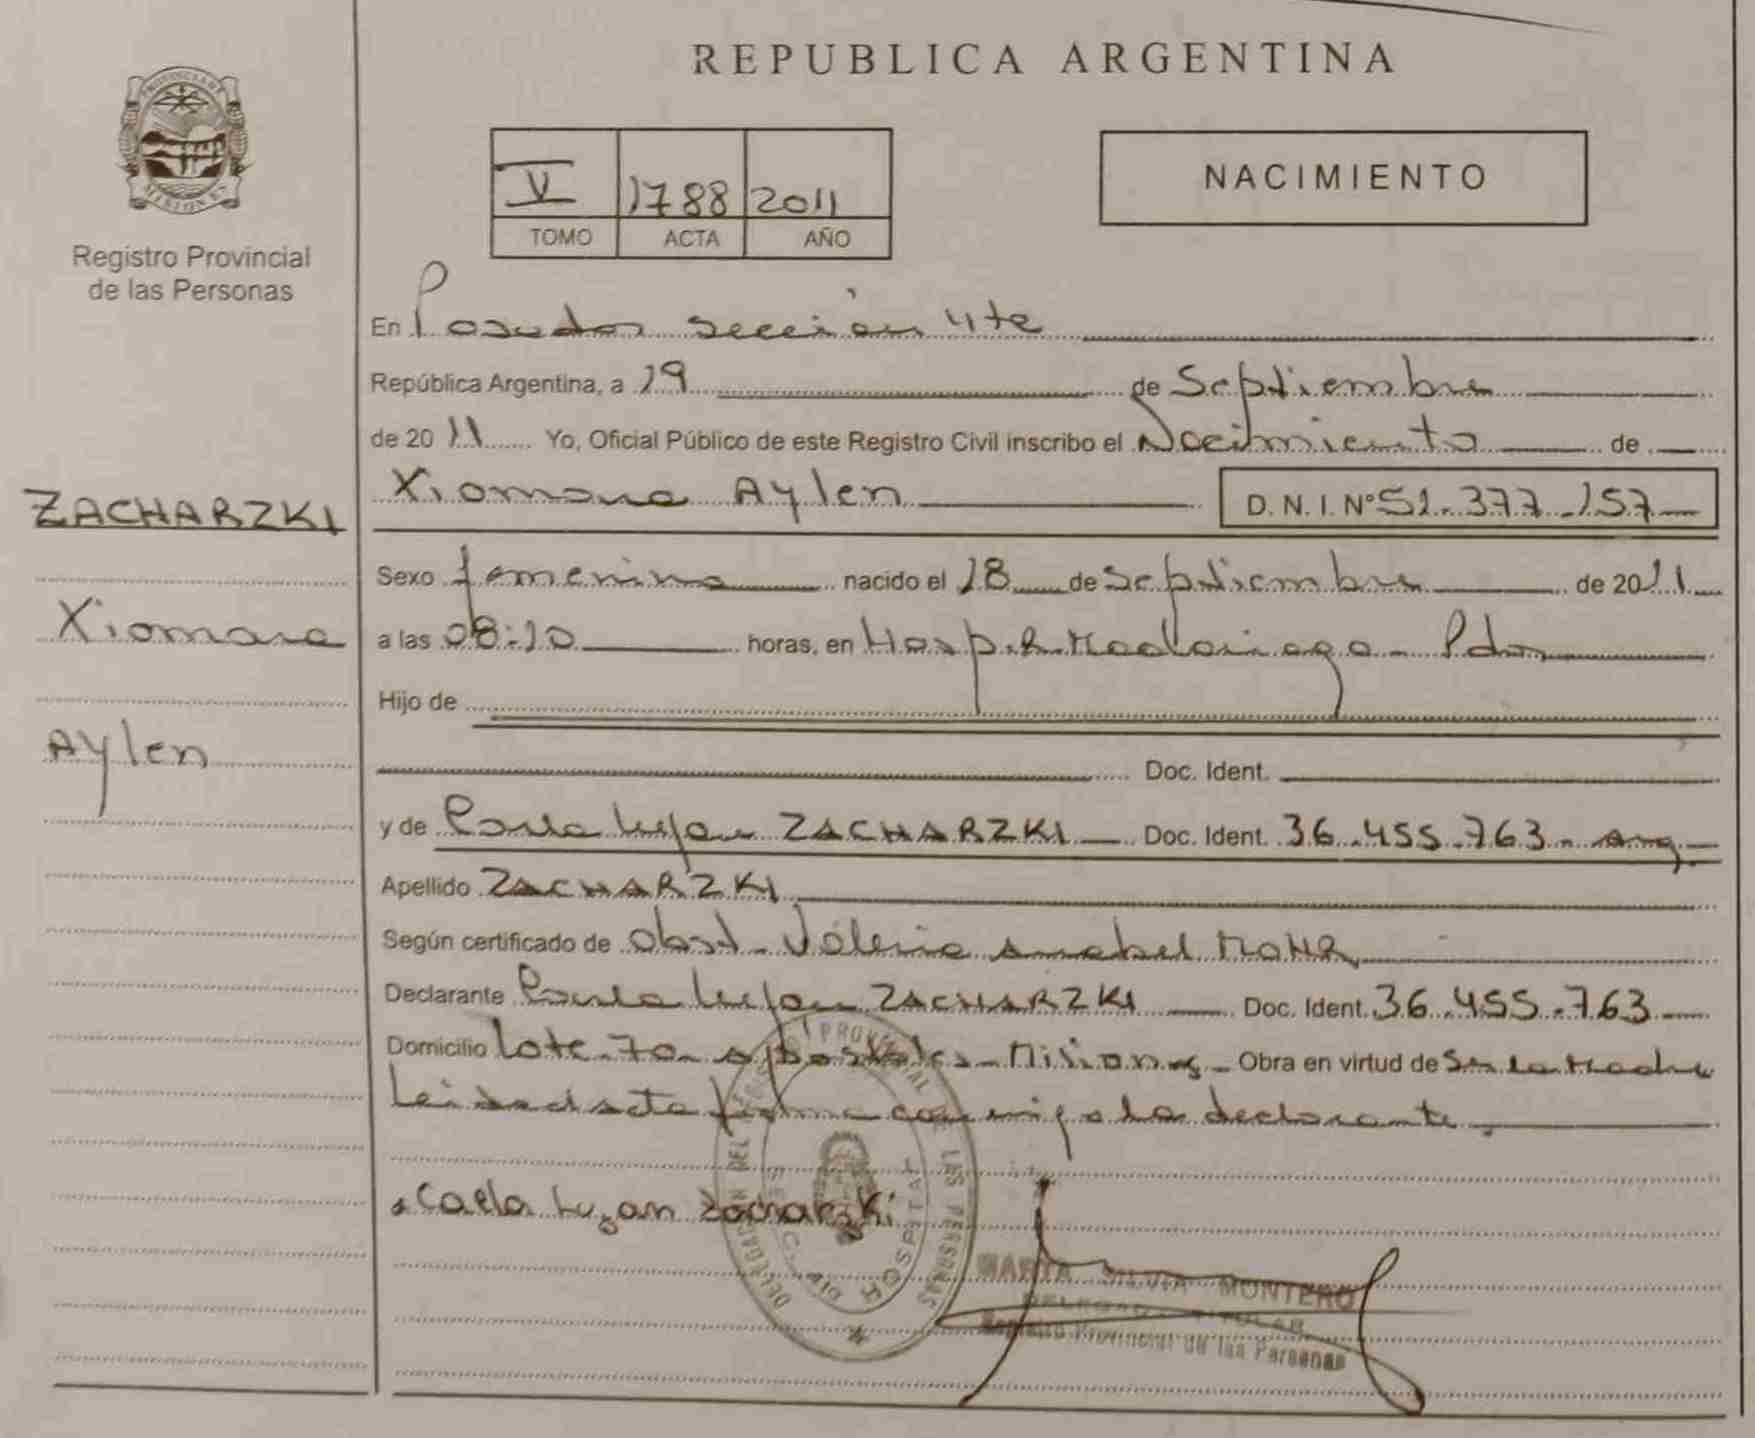 REPUBLICA ARGENTINA
PROVINCIA DE
MISIONES
Registro Provincial
de las Personas
V 1788 2011
TOMO ACTA AÑO
NACIMIENTO
En Posadas sección 4te
República Argentina, a 19 de Septiembre
de 2011 Yo, Oficial Público de este Registro Civil inscribo el Nacimiento de
Xiomara Aylen D. N. I. Nº 51.377.157
ZACHARZKI
Xiomara
Aylen
Sexo femenino nacido el 18 de Septiembre de 2011
a las 08:10 horas, en Hosp. R. Madariaga - Pdas
Hijo de
Doc. Ident.
y de Carla Lujan ZACHARZKI Doc. Ident. 36.455.763 - arg.
Apellido ZACHARZKI
Según certificado de Obst. Valeria Anabel MOHR
Declarante Carla Lujan ZACHARZKI Doc. Ident. 36.455.763
Domicilio Lote 70 - Apostoles - Misiones - Obra en virtud de Ser la Madre
Leida el acta firma conmigo la declarante.
Carla Luzan Zacharzki
DELEGACION DEL REGISTRO PROVINCIAL DE LAS PERSONAS
HOSPITAL
MARTA SILVIA MONTERO
DELEGADO TITULAR
Registro Provincial de las Personas